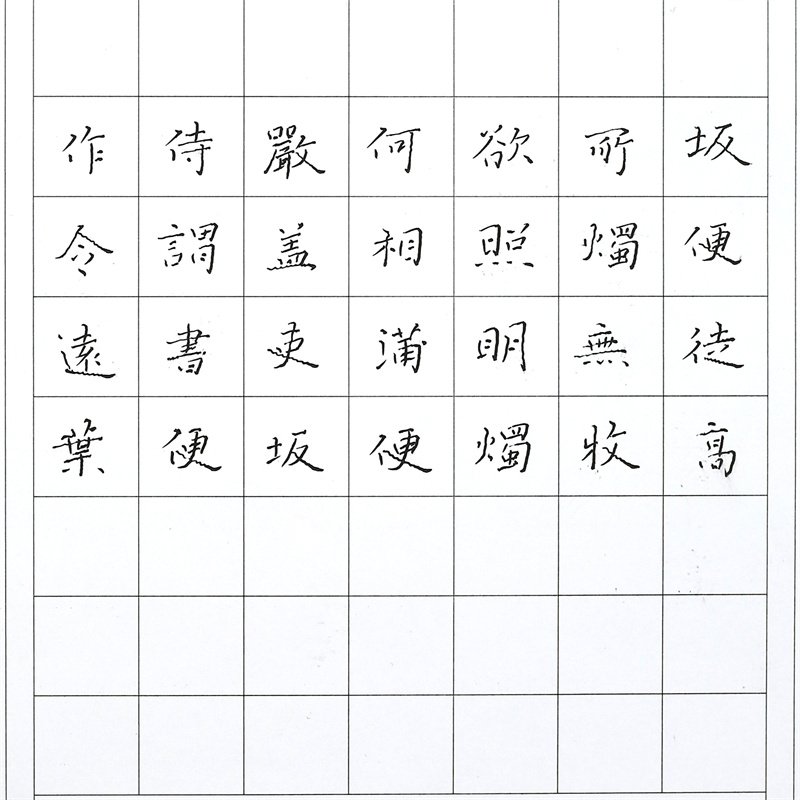 坂便徒高
所燭無牧
欲照明燭
何相蒲便
嚴盖吏坂
侍謂書便
作令遠葉